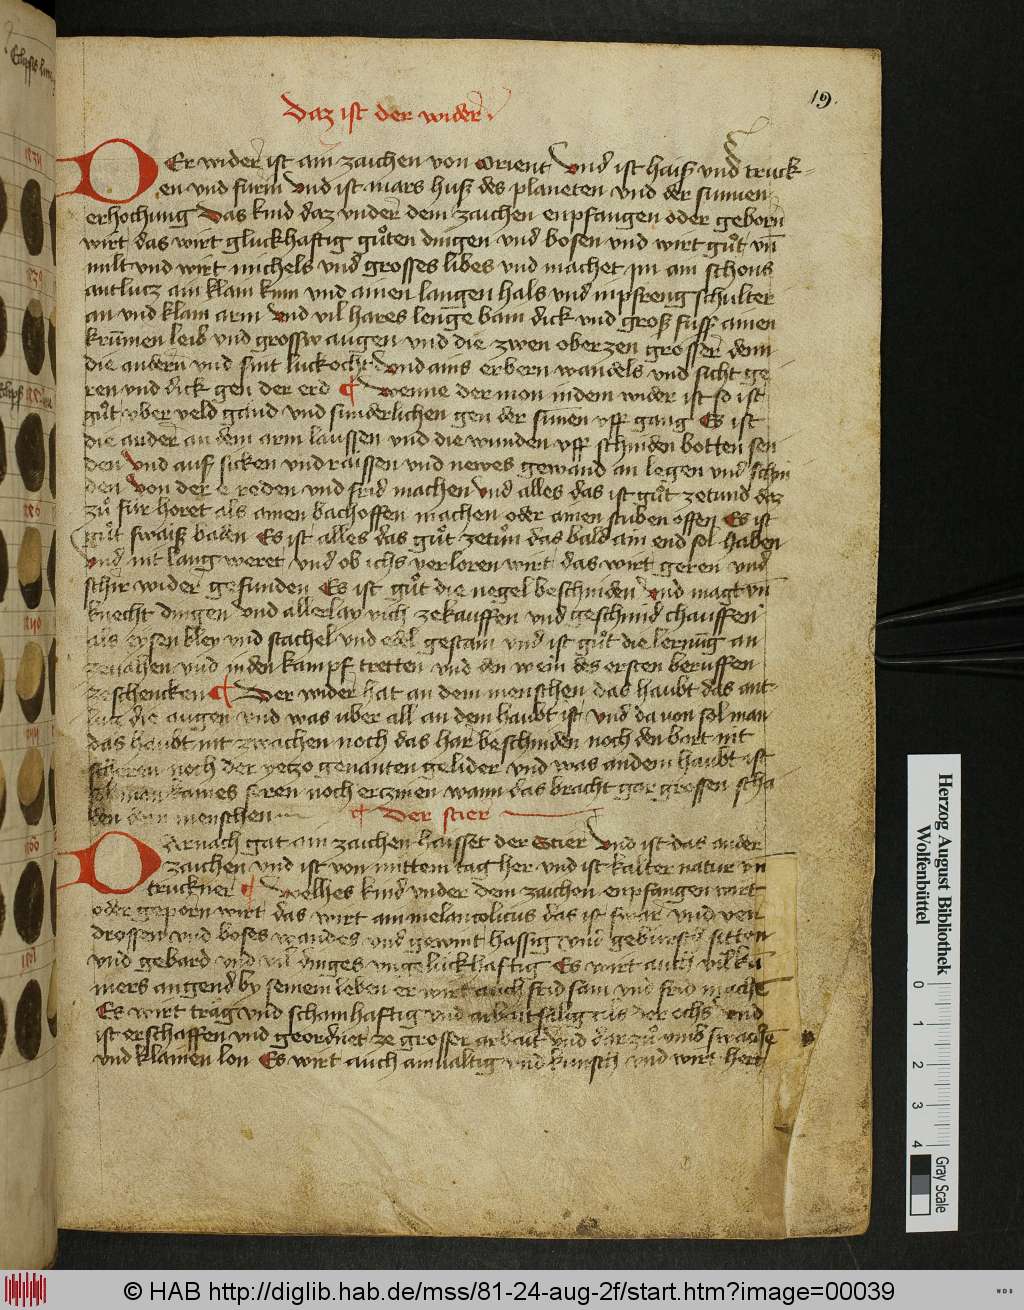 19.
Daz ist der wider
DEr wider ist ain zaichen von Orient Vnd ist haiß vnd truck-
en vnd furin Vnd ist mars huß des planeten vnd der sunnen
erhochung Das kind daz vnder dem zaichen enpfangen oder geborn
wirt das wirt gluckhaftig guͦten dingen vnd bosen vnd wirt guͦt vn̄
milt vnd wirt michels vnd grosses libes vnd machet im ain schons
antlucz ain klain kinn vnd ainen langen hals vnd schulter
an vnd klain arm Vnd vil hares lenge bain dick vnd groß fuss ainen
krum̄en leib vnd grossw augen vnd die zwen oberzen grosser denn
die andern vnd sint luckocht Vnd ains erbern wandels vnd sicht ge
ren vnd dick gen der erd ¶ Wenne der mon in dem wider ist so ist
guͦt vber veld gand vnd sunderlichen gen der sunnen vff gang Es ist
die auder an dem arm laussen vnd die wunden vff schniden botten sen
den Vnd auß sicken vnd raissen vnd newes gewand an legen vnd schni
den Von der e reden vnd frid machen Vnd alles das ist guͦt zetund daz
zuͦ fur horet als ainen bachoffen machen oder ainen stuben offen Es ist
guͦt swaiß baden Es ist alles das guͦt zetuͦn das bald ain end sol haben
Vnd nit lang weret Vnd ob ichs verloren wirt das wirt geren vnd
schir wider gefunden Es ist guͦt die negel beschniden Vnd magt vn̄
knecht dingen Vnd allerlay vich zekauffen vnd geschmid chauffen
als eysen kley vnd stachel vnd edel gestain vnd ist guͦt die lernung an
zevahen vnd in den kampf tretten vnd den wein des ersten beruffen
zeschencken ¶ Der wider hat an dem menschen das haubt das ant-
lucz die augen vnd was uber all an dem haubt ist Vnd da von sol man
das haubt nit zwachen noch das har beschniden noch den bart nit
scheren noch der yetzo genanten gelider vnd was an dem haubt ist
sol man kaines seren noch ercznien wann das bracht gar grossen scha
den dem menschen ¶ Der stier
DArnach gat ain zaichen haisset der Stier Vnd ist das ander
zaichen vnd ist von mittem tag her vnd ist kalter natur vn̄
truckner ¶ Welhes kind vnder dem zaichen enpfangen wirt
oder geporn wirt das wirt ain melancolicus das ist swar vnd ver
drossen vnd boses wandes vnd gewint hassig vnd sitten
vnd gebard vnd vil dinges vngeluckhaftig Es wirt auch vil ku
mers angend by seinem leben er wirt auch frid sam vnd frid mache
Es wirt träg vnd schamhaftig vnd arbaitsälig als der ochs Vnd
ist erschaffen vnd geordnet ze grosser arbait vnd dar zuͦ vmb swache
vnd klainen lon Es wirt auch ainualtig vnd kunsch vnd wirt hert
Herzog August Bibliothek
Wolfenbüttel
0 1 2 3 4
Gray Scale
© HAB http://diglib.hab.de/mss/81-24-aug-2f/start.htm?image=00039